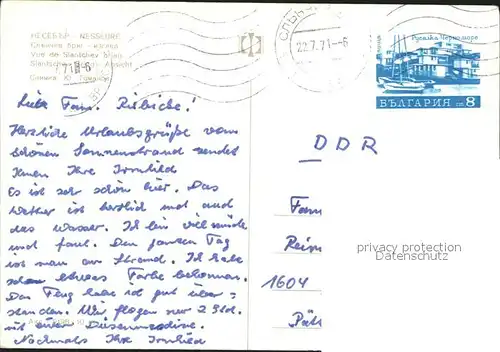 НЕСЕБЪР · NESSEBRE
Слънчев бряг - изглед
Vue de Slantchev Briag
Ansicht
СЛЪНЧ
22.7.71-6
71-6
Русалка Черно море
БЪЛГАРИЯ ст 8
Liebe Fam. Rübiche!
Herzliche Urlaubsgrüße vom
schönen Sonnenstrand sendet
Ihnen Ihre Irmhild
Es ist sehr schön hier. Das
Wetter ist herrlich und auch
das Wasser. Ich bin viel müde
und faul. Den ganzen Tag
ist man am Strand. Ich habe
schon etwas Farbe bekommen.
Der Flug habe ich gut über-
standen. Wir flogen nur 2 Std.
mit einer Düsenmaschine.
Nochmals Ihre Irmhild
DDR
Fam
Rein
1604
Pät
privacy protection
Datenschutz